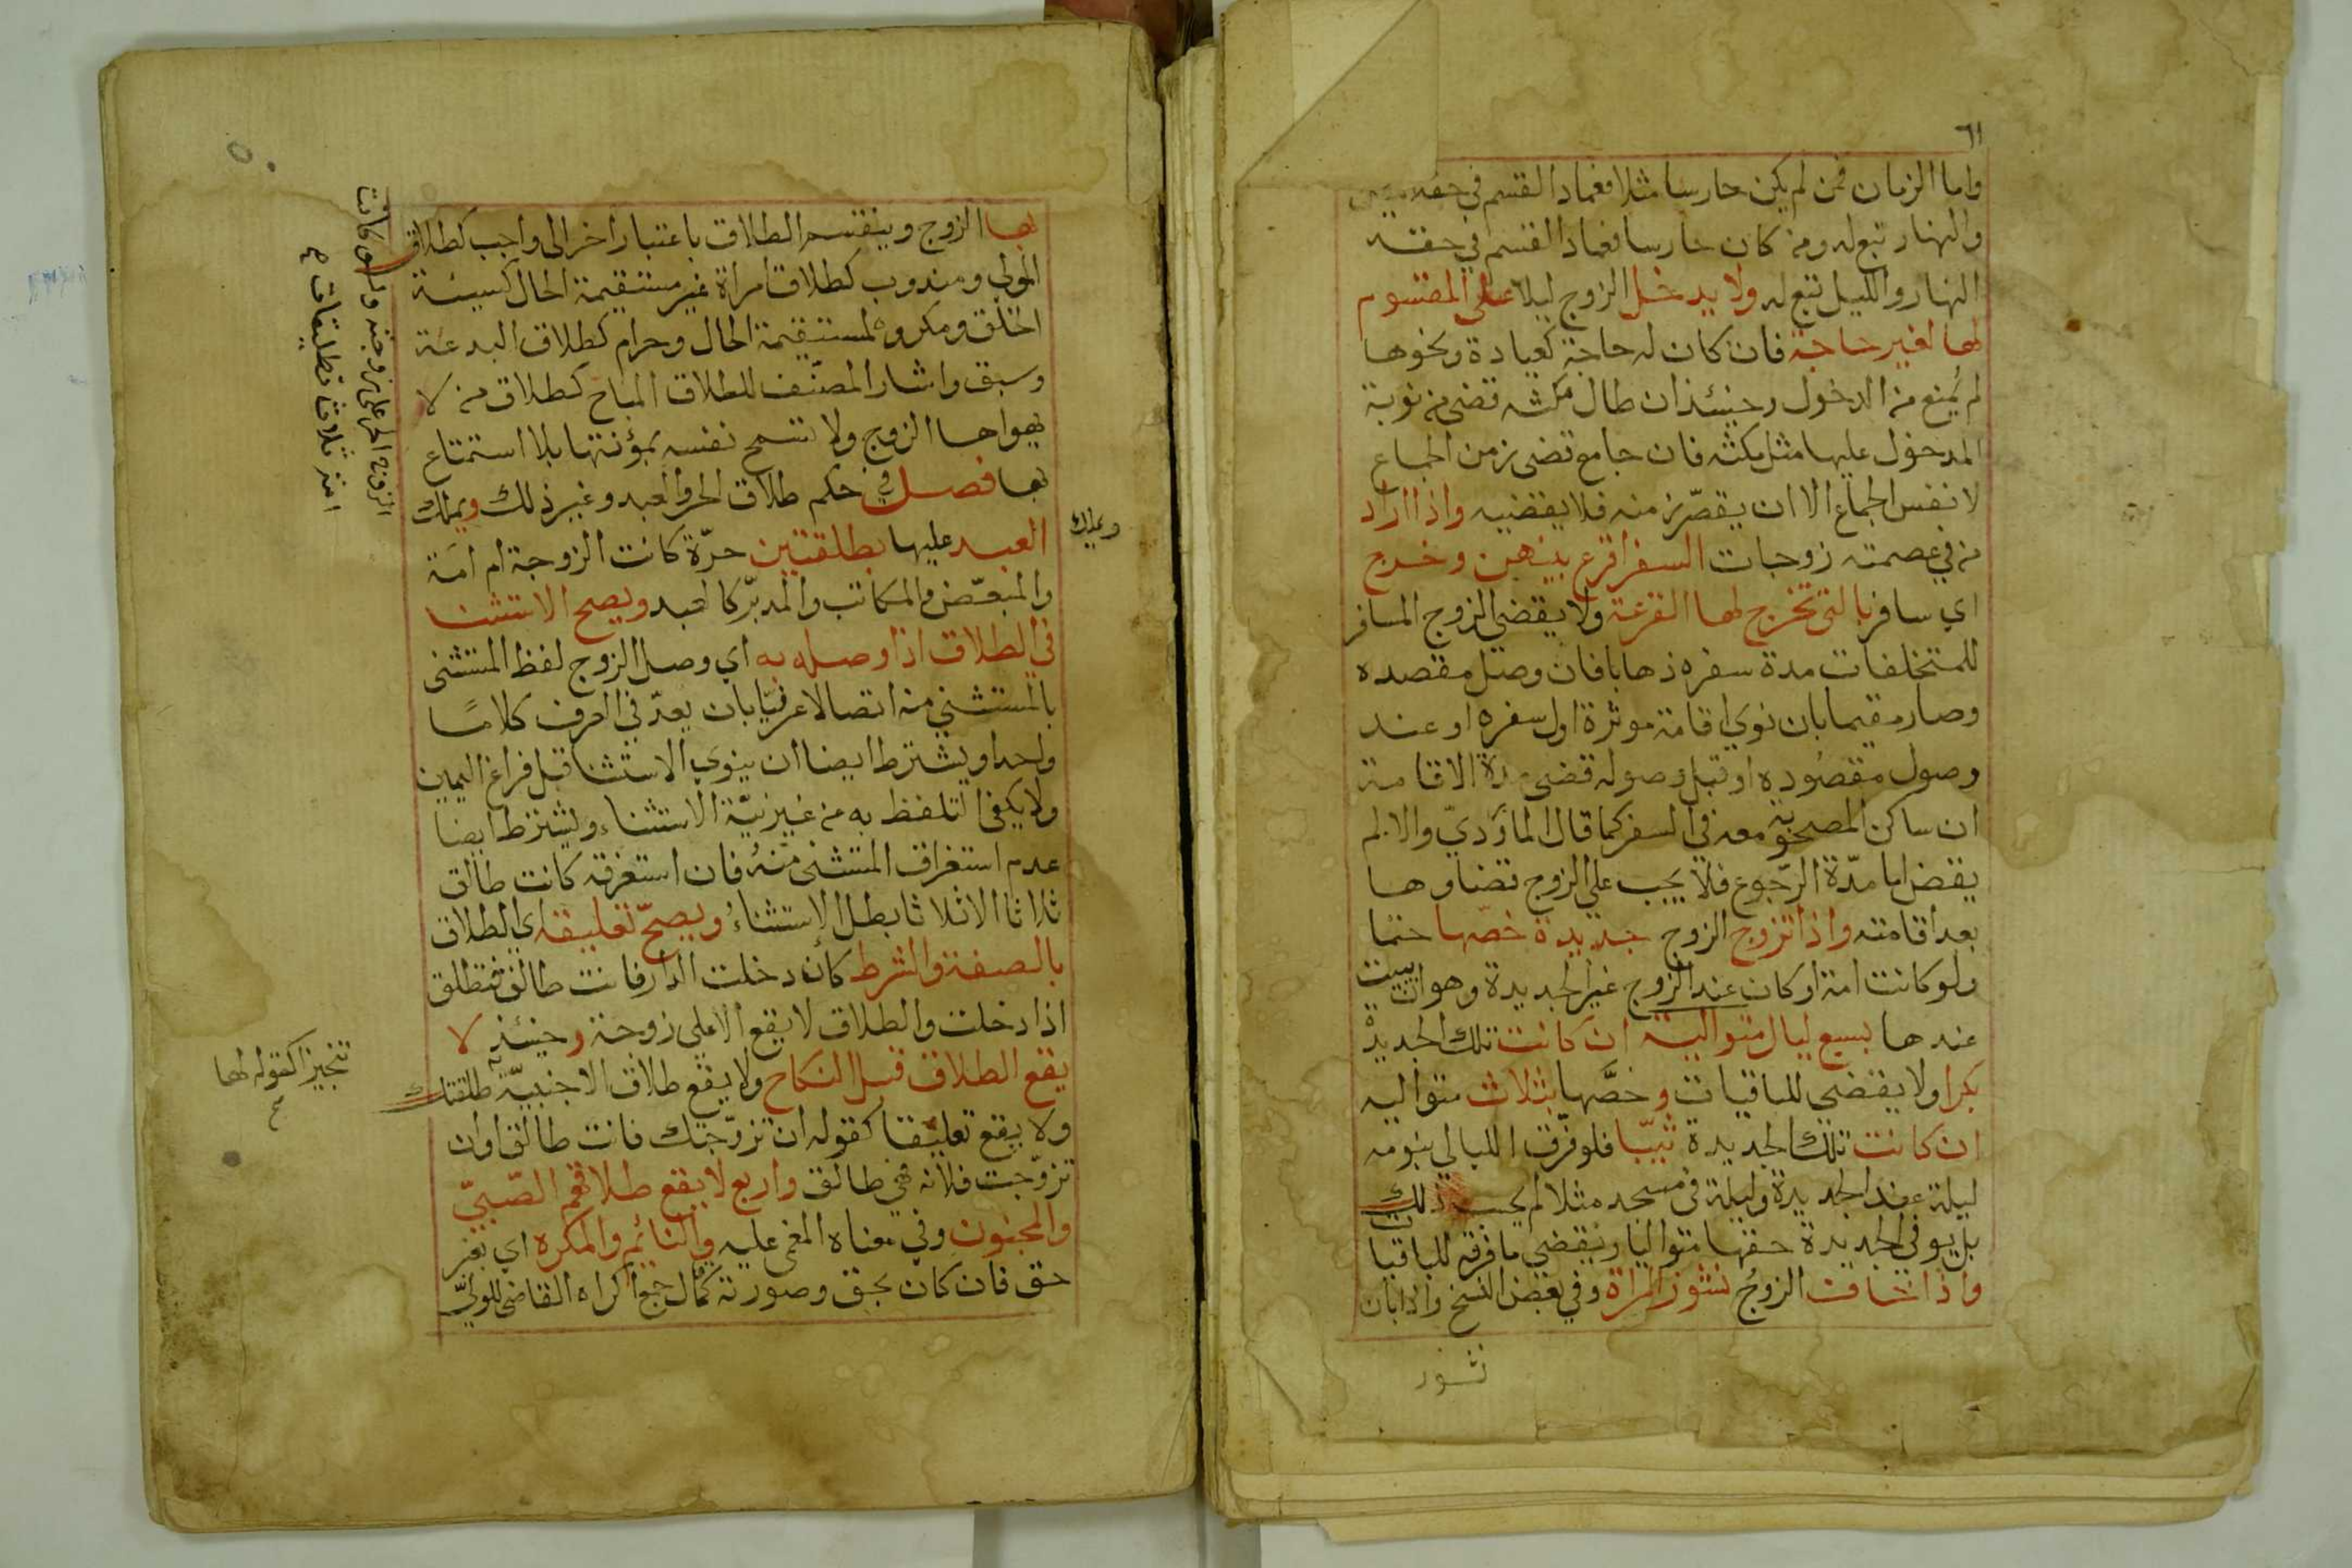 ٦١
واما الزمان فمن لم يكن حارسا مثلا فعماد القسم في حقه
والنهار تبع له ومن كان حارسا فعماد القسم في حقه
النهار والليل تبع له ولا يدخل الزوج ليلا على المقسوم
لها لغير حاجة فان كان له حاجة كعيادة ونحوها
لم يُمنع من الدخول وحينئذ ان طال مكثه قضى من نوبة
المدخول عليها مثل مكثه فان جامع قضى زمن الجماع
لا نفس الجماع الا ان يقصر زمنه فلا يقضيه واذا اراد
من في عصمته زوجات السفر اقرع بينهن وخرج
اي سافر بالتي تخرج لها القرعة ولا يقضي الزوج المسافر
للمتخلفات مدة سفره ذهابا فان وصل مقصده
وصار مقيما بان نوي اقامة موثرة اول سفره او عند
وصول مقصوده او قبل وصوله قضى مدة الاقامة
ان ساكن المصحوبة معه في السفر كما قال الماوردي والا لم
يقض اما مدّة الرّجوع فلا يجب على الزوج قضاوها
بعد اقامته واذا تزوج الزوج جديدة خصّها حتما
ولو كانت امة او كان عند الزوج غير الجديدة وهو ان يبيت
عندها بسبع ليال متوالية ان كانت تلك الجديدة
بكرا ولا يقضي للباقيات وخصَّها بثلاث متواليه
ان كانت تلك الجديدة ثيّبا فلو فرّق الليالي بنومه
ليلة عند الجديدة وليلة في مسجد مثلا لم يحسب ذلك
بل يوفي الجديدة حقها متواليا ويقضي ما فرقه للباقيات
واذا خاف الزوج نشوز المراة وفي بعض النسخ واذا بان
نشوز
بها الزوج وينقسم الطلاق باعتبار اخر الى واجب كطلاق
المولي ومندوب كطلاق امراة غير مستقيمة الحال كسيئة
الخلق ومكروه لمستقيمة الحال وحرام كطلاق البدعة
وسبق واشار المصنّف للطلاق المباح كطلاق من لا
يهواها الزوج ولا تسمح نفسه بمؤنتها بلا استمتاع
بها فصل في حكم طلاق الحر والعبد وغير ذلك ويملك
العبد عليها بطلقتين حرّة كانت الزوجة ام امَة
والمبعّض والمكاتب والمدبّر كالعبد ويصح الاستثنا
في الطلاق اذا وصله به اي وصل الزوج لفظ المستثنى
بالمستثني منه اتصالا عرفيّا بان يعدّ في العرف كلامًا
واحدا ويشترط ايضا ان ينوي الاستثنا قبل فراغ اليمين
ولا يكفي التلفظ به من غير نيّة الاستثناء ويشترط ايضا
عدم استغراق المستثنى منه فان استغرقه كانت طالق
ثلاثا الا ثلاثا بطل الاستثناءُ ويصحّ تعليقه اي الطلاق
بالصفة والشرط كأن دخلت الدار فانت طالق فتطلق
اذا دخلت والطلاق لا يقع الا على زوجة وحينئذ لا
يقع الطلاق قبل النكاح ولا يقع طلاق الاجنبيّة طلقتك
ولا يقع تعليقا كقوله ان تزوّجتك فانت طالق او ان
تزوّجت فلانه فهي طالق واربع لا يقع طلاقهم الصّبيّ
والمجنون وفي معناه المغمى عليه والنائم والمكره اي بغير
حق فان كان بحق وصورته كما قال جمع اكراه القاضي للموليّ
ويملك
الزوج الحر على زوجته ولو كانت
امة ثلاث تطليقات
تنجيزا كقوله لها